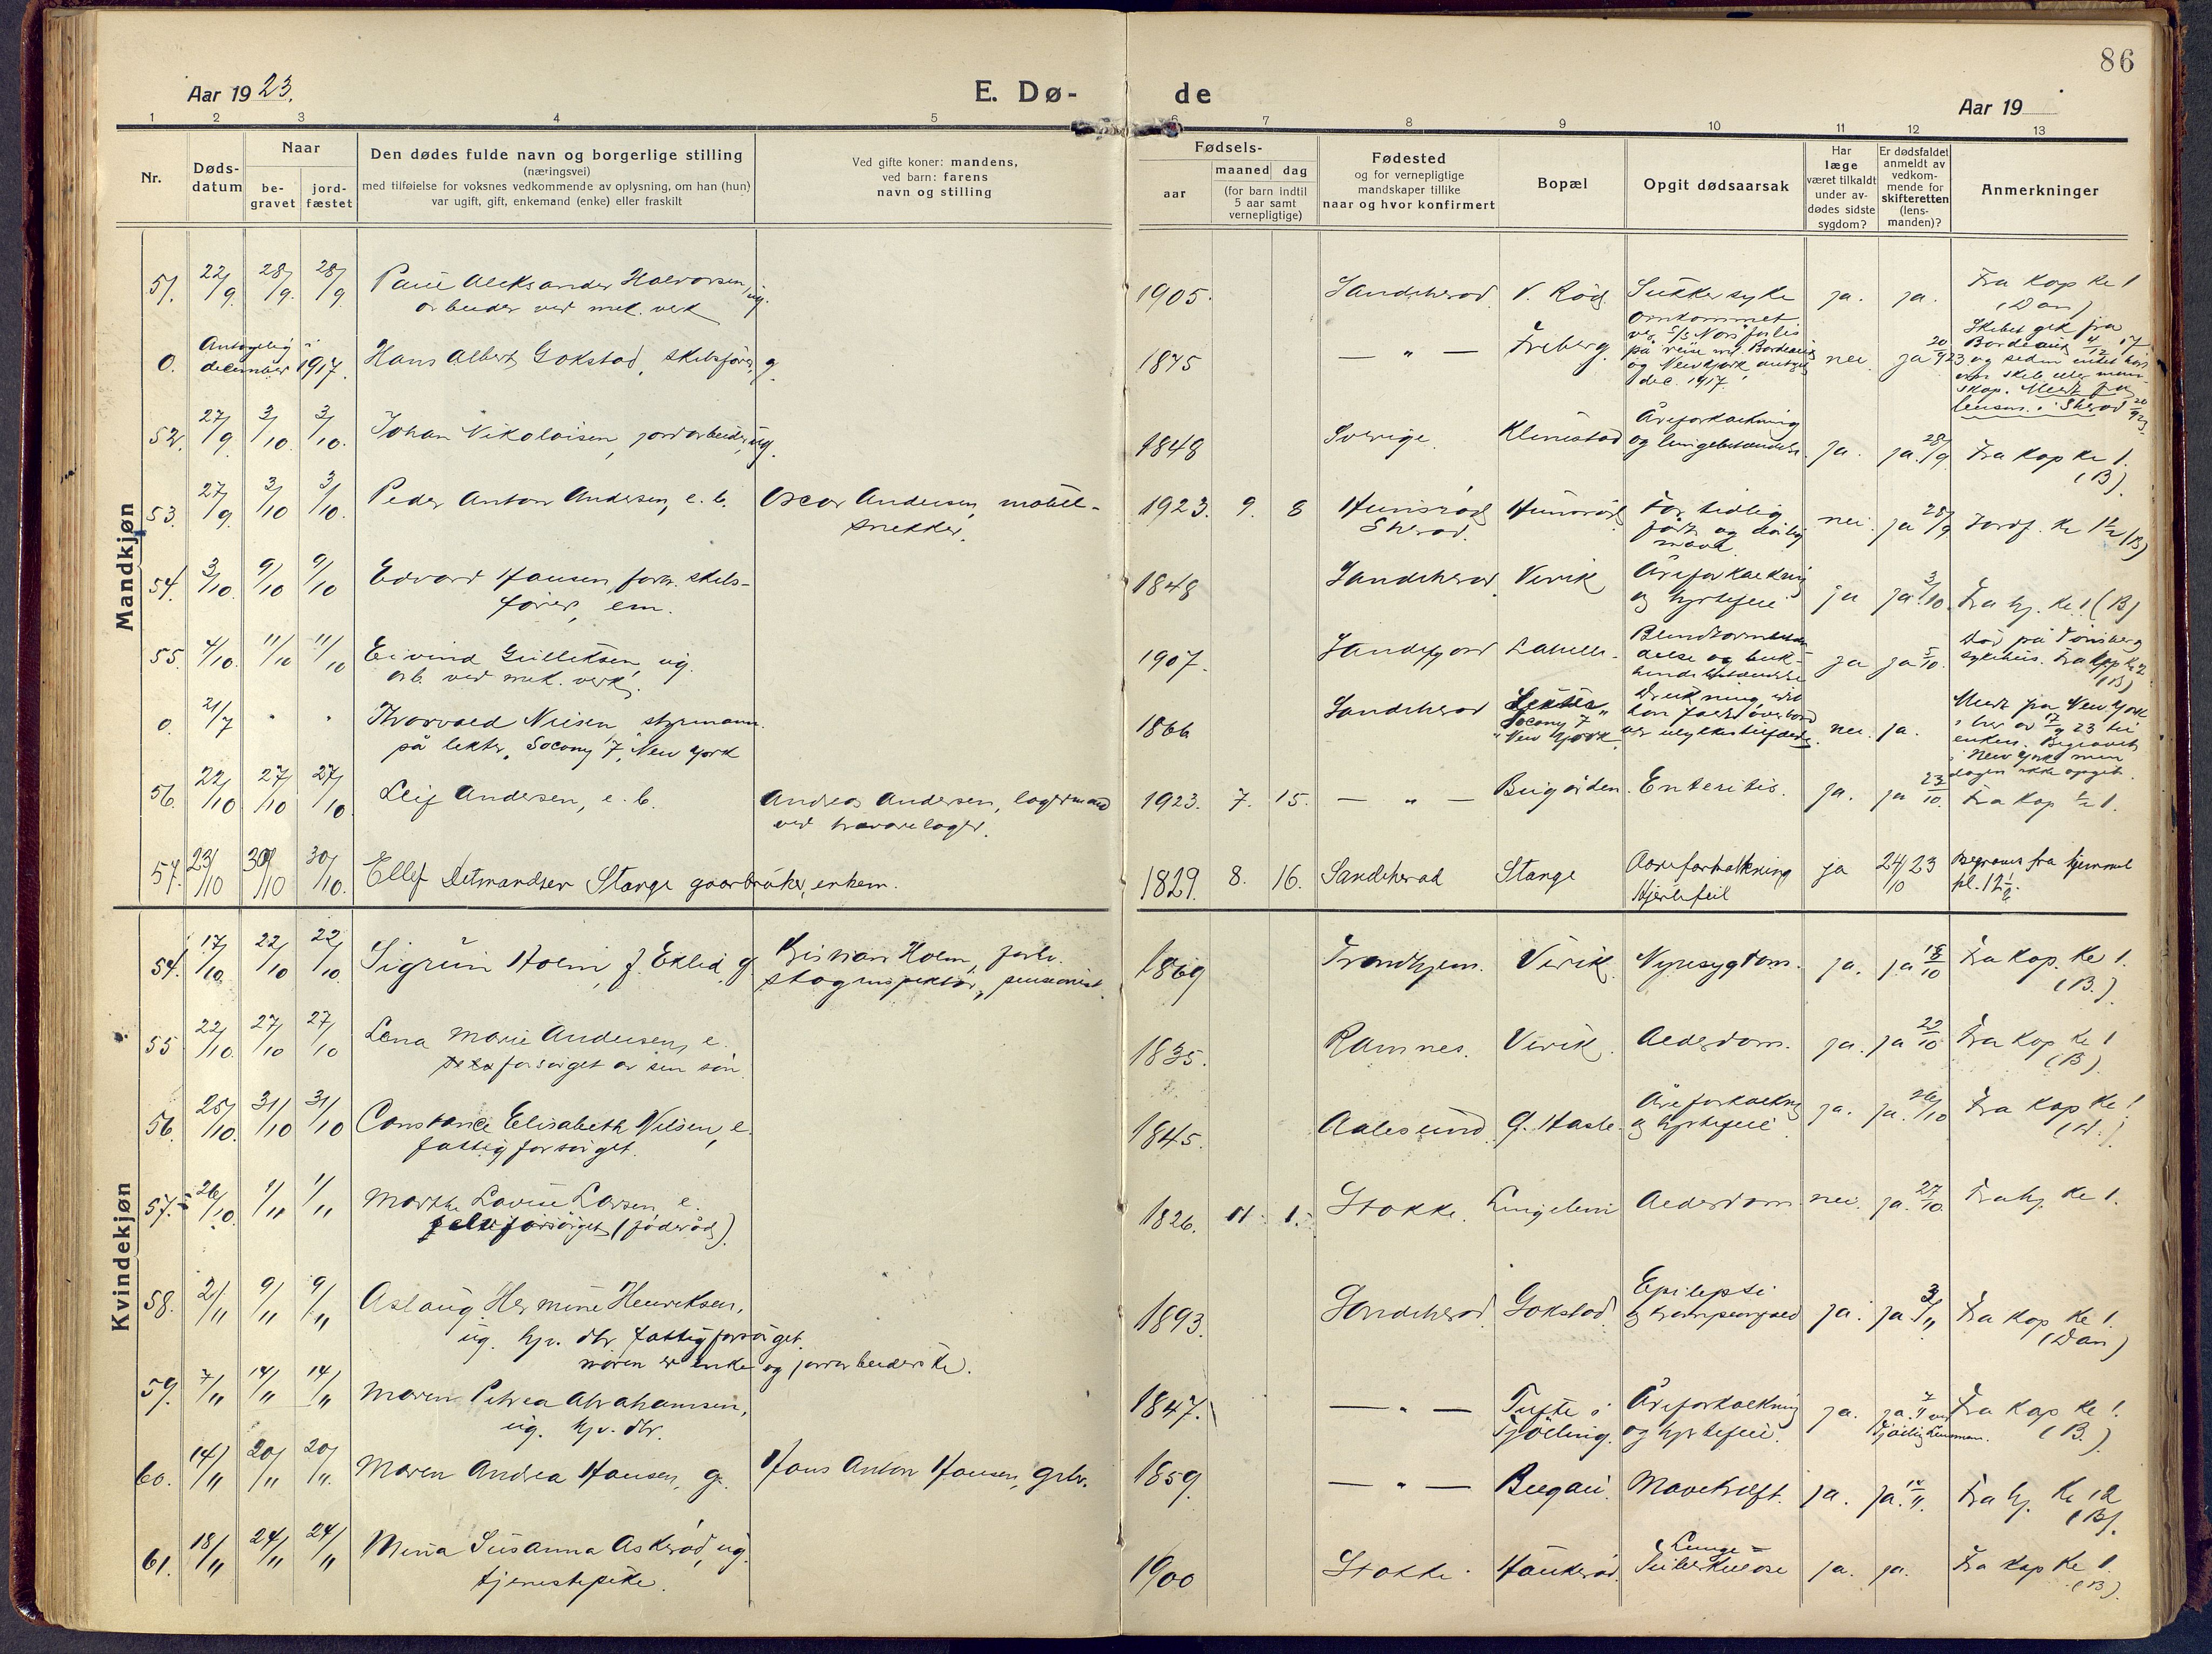 86
Aar 1923.
E. Dø-
de
Aar 19
1 2 3 4 5 6 7 8 9 10 11 12 13
Nr.
Døds-
datum
Naar
be-
gravet
jord-
fæstet
Den dødes fulde navn og borgerlige stilling
(næringsvei)
med tilføielse for voksnes vedkommende av oplysning, om han (hun)
var ugift, gift, enkemand (enke) eller fraskilt
Ved gifte koner: mandens,
ved barn: farens
navn og stilling
Fødsels-
aar
maaned dag
(for barn indtil
5 aar samt
vernepligtige)
Fødested
og for vernepligtige
mandskaper tillike
naar og hvor konfirmert
Bopæl
Opgit dødsaarsak
Har
læge
været tilkaldt
under av-
dødes sidste
sygdom?
Er dødsfaldet
anmeldt av
vedkom-
mende for
skifteretten
(lens-
manden)?
Anmerkninger
Mandkjøn
51. 22/9. 28/9. 28/9 Paul Aleksander Halvorsen, ug.
arbeider ved mek. verk
1905. Sandeherad V. Röd Sukkersyke ja. ja. Fra kap ke 1
(Dan)
0. Antagelig i
december 1917. Hans Albert Gokstad, skibsfører, g.
1875 — " — Freberg. Omkommet
ved S/S "Nors" forlis
på reise ml. Bordeaux
og New York antagel
dec. 1917. nei. ja 20/9 23 Skibet gik fra
Bordeaux 4/12 17
og siden intet hørt
om skib eller man-
skap. Meldt fra
lensm. i Sherad 20/9 23.
52. 27/9. 3/10 3/10. Johan Nikolaisen, jordarbeider, ug.
1848 Sverige. Klinestad Åreforkalkning
og lungebetændelse. ja. ja. 28/9 Fra kap ke 1.
(B).
53. 27/9. 3/10 3/10. Peder Anton Andersen, e. b. Oscar Andersen, møbel-
snekker.
1923. 9. 8 Hunsröd
Sherad. Hunsröd. For tidlig
født og dårlig
mave nei. ja 28/9 Jordf. ke 12½ (B)
54. 3/10. 9/10 9/10 Edvard Hansen, forh. skibs-
fører, em.
1848 Sandeherad. Virik Åreforkalkning
og hjertefeil ja ja 3/10. Fra hj. ke. 1 (B)
55. 4/10. 11/10 11/10 Eivind Gulliksen, ug.
arb. ved mek. verk.
1907. Sandefjord Blindtarmbetæn
delse og buk-
hindebetændelse ja ja 5/10. Død på Tönsberg
sykehus. Fra kap ke 2
(B)
0. 21/7 " " Thorvald Nilsen, styrmann.
på lekter "Socony 7", New York
1866 Sandeherad Lekter "
Socony 7
" New York. Drukning, idet
han faldt overbord
ved ulykkestilfælde. nei. ja. Meldt fra New York
i brev av 17/9 23 til
enken. Begravet
i New York men
dagen ikke opgit.
56. 22/10 27/10 27/10. Leif Andersen, e. b. Andreas Andersen, lagermand
ved trævarelager.
1923. 7. 15. — " — Bugården. Enteritis. ja. ja 23/10. Fra kap ½ 1.
57. 23/10 30/10 30/10. Ellef Detmandsen Stange gaarbruker, enkem.
1829. 8. 16. Sandeherad Stange Aareforkalkning
Hjertefeil ja 24/10 23 Begraves fra hjemmet
kl. 12½.
Kvindekjøn
54. 17/10. 22/10 22/10. Sigrun Holm, f. Eklid, g. Kristian Holm, forh.
skoginspektør, pensionist.
1869 Trondhjem. Virik. Nyresygdom. ja. ja 18/10 Fra kap. ke 1.
(B.).
55 22/10. 27/10 27/10 Lena Marie Andersen, e.
forsörget av sin sön.
1835. Ramnes. Virik. Alderdom. ja. ja 22/10 Fra kap ke 1
(B).
56. 25/10. 31/10 31/10 Constance Elisabeth Nilsen, e.
fattigforsörget.
1845. Aalesund. Ø. Hasle. Åreforkalkning
og hjertefeil. ja. ja. 26/10 Fra kap ke 1
57. 26/10. 1/11 1/11 Marthe Lovise Larsen, e.
selvforsörget (föderåd).
1826. 11. 1. Stokke. Lingelem Alderdom nei. ja. 27/10. Fra hj. ke 1.
58. 2/11 9/11 9/11 Aslaug Hermine Henriksen,
ug. hjv. dtr. fattigforsörget.
moren er enke og jordarbeiderske.
1893. Sandeherad Gokstad Epilepsi
og krampeanfald ja. ja 3/11 Fra kap ke 1.
(Dan)
59. 7/11 14/11 14/11 Maren Petrea Abrahamsen,
ug. hjv. dtr.
1847. — " — Tufte i
Tjölling. Åreforkalkning
og hjertefeil. ja. ja. 7/11 ved
Tjölling lensman. Fra kap ke 1.
(B.).
60. 14/11 20/11 20/11. Maren Andrea Hansen, g. Hans Anton Hansen, grbr.
1859. — " — Bugaen. Mavekræft. ja. ja. 14/11. Fra hj. ke 12
(B).
61. 18/11 24/11 24/11 Mina Susanna Askeröd, ug.
tjenestepike.
1900 Stokke. Haukeröd. Lunge=
Tuberkulose ja. ja. Fra kap ke 1.
(B).